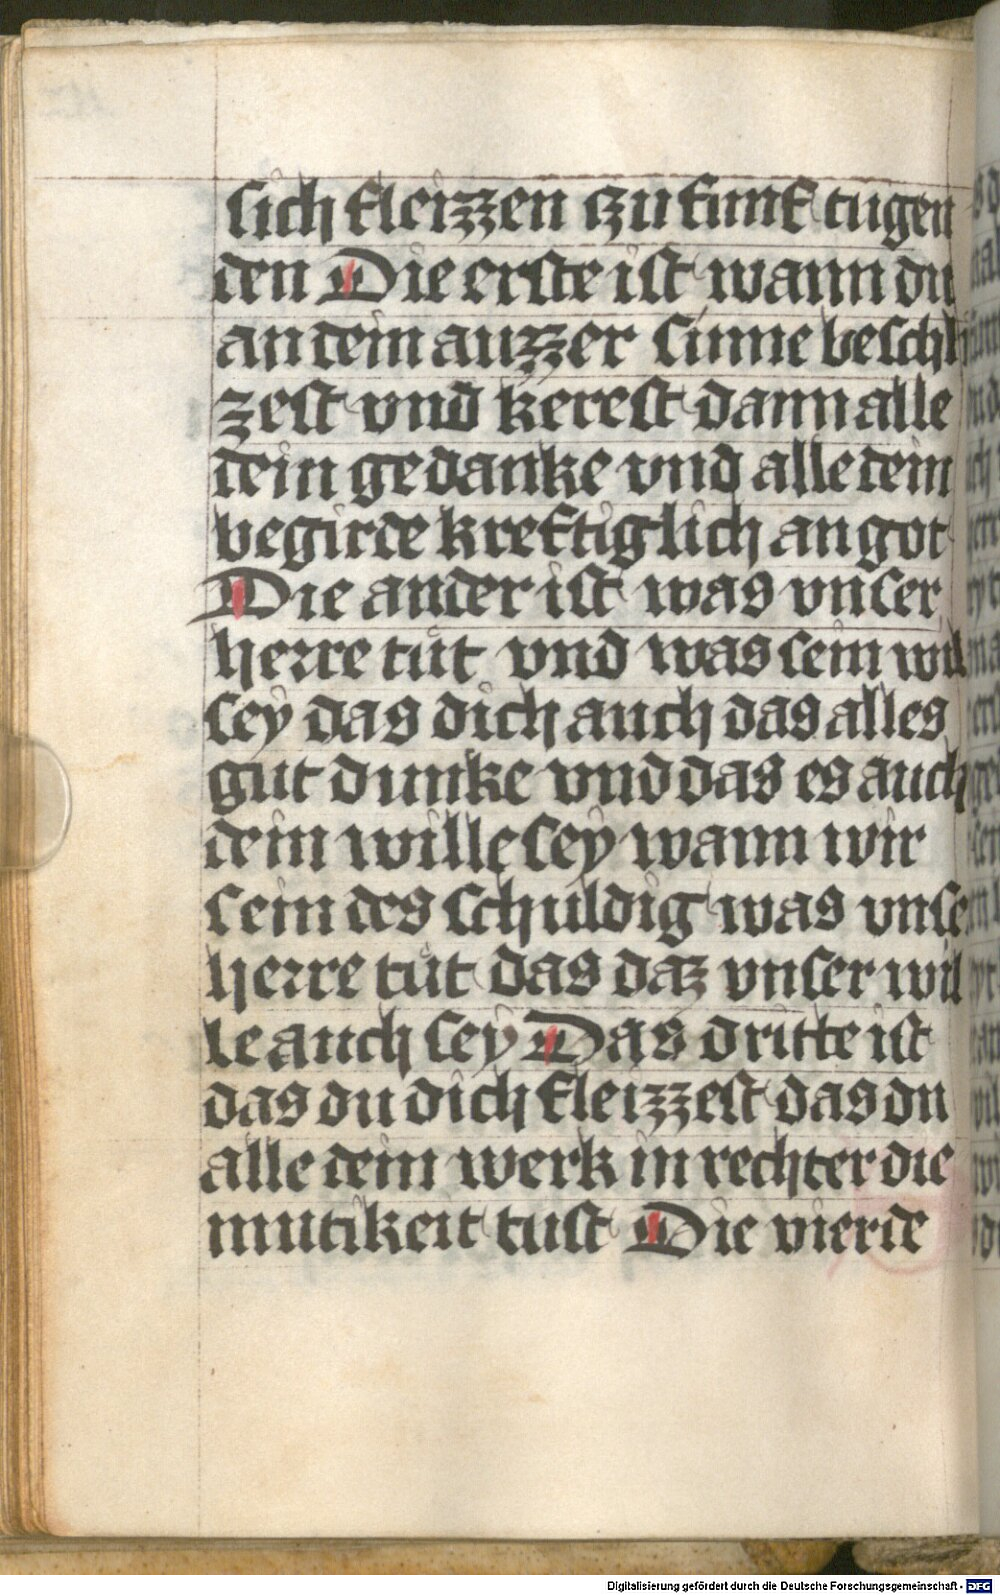 sich fleizzen czu funf tugen
den Die erste ist wann du
an dein auzzer sinne beschli
zest vnd kerest dann alle
dein gedanke vnd alle dein
begirde kreftiglich an got
Die ander ist was vnser
herre tut vnd was sein wil
sey das dich auch das alles
gut dunke vnd das es auch
dein wille sey wann wir
sein des schuldig was vnse
herre tut das daz vnser wil
le auch sey Das dritte ist
das du dich fleizzest das du
alle dein werk in rechter die
mutikeit tust Die vierde
Digitalisierung gefördert durch die Deutsche Forschungsgemeinschaft - DFG